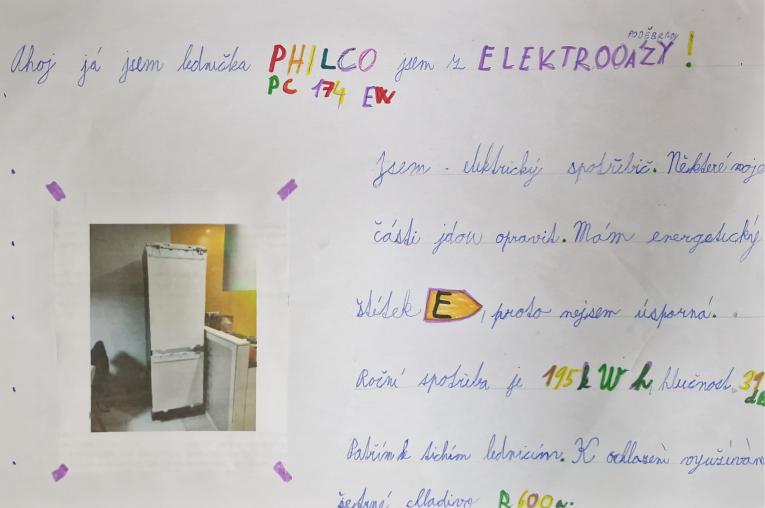 PODĚBRADY
Ahoj já jsem lednička PHILCO jsem z ELEKTROOAZY!
PC 174 EW
Jsem - elektrický spotřebič. Některé moje
části jdou opravit. Mám energetický
štítek E, proto nejsem úsporná.
Roční spotřeba je 195 kWh, hlučnost 39
dB
Patřím k tichím lednicím. K ochlazení využívám
šetrné chladivo R600a.